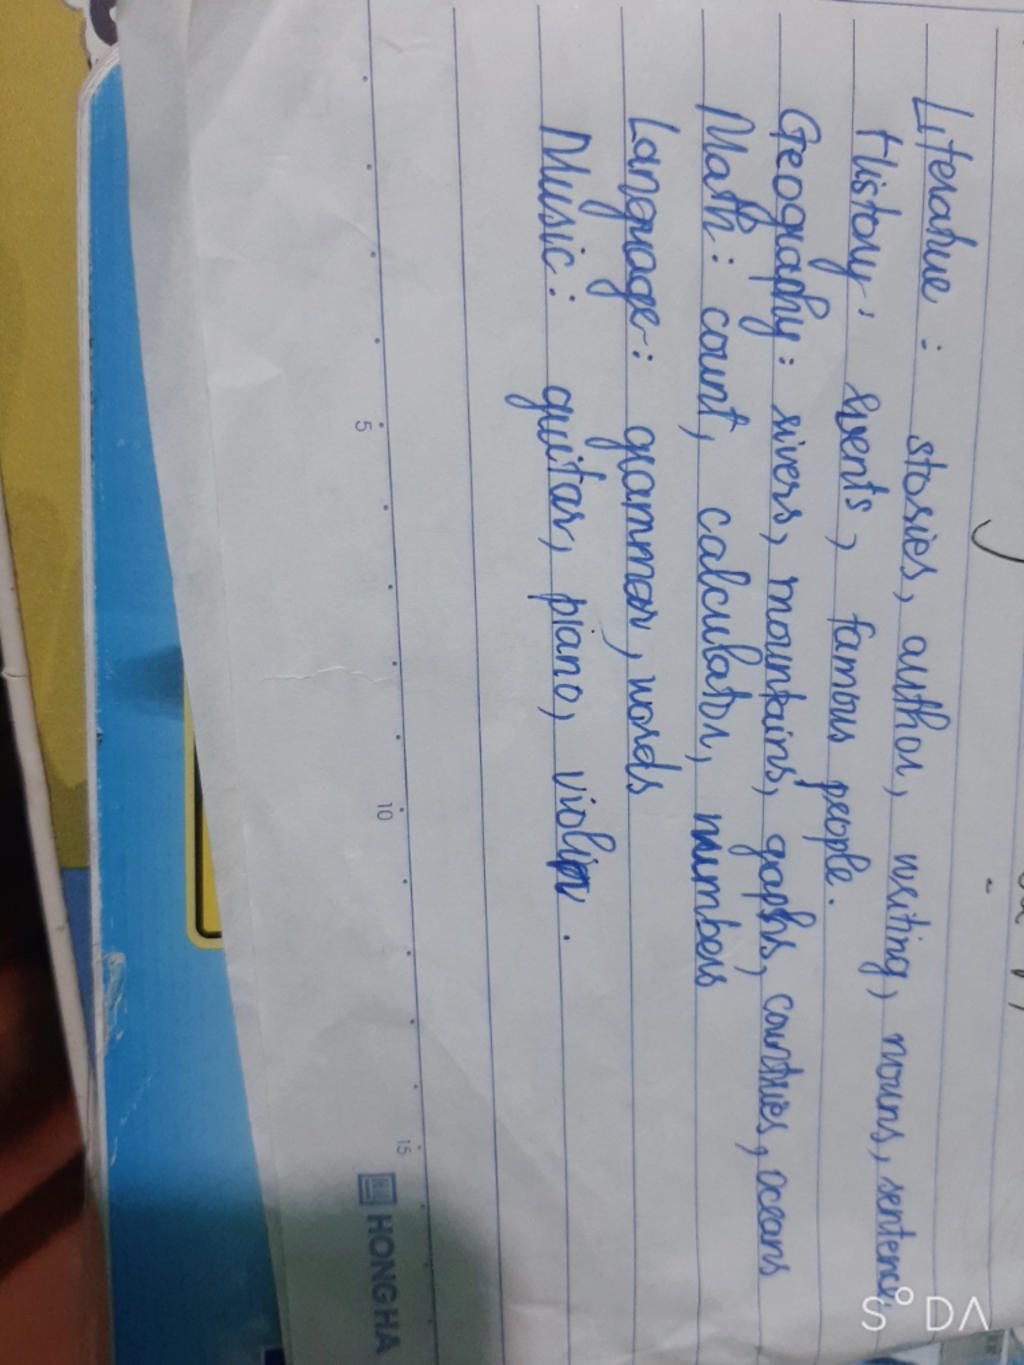 Literature : stories, author, writing, nouns, sentence,
History, events, famous people.
Geography : rivers, mountains, gaphs, countries, oceans
Math : count, calculator, numbers
Language : grammar, words
Music : guitar, piano, violin.
5 10 15
HONG HA
SODA